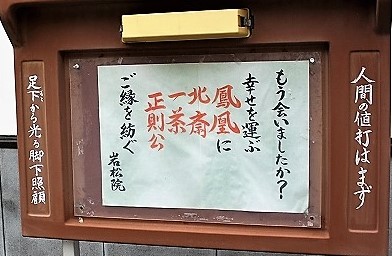 人間の値打はまず
もう会いましたか?
幸せを運ぶ
鳳凰に
北斎
一茶
正則公
ご縁を紡ぐ
岩松院
足下から光る脚下照顧